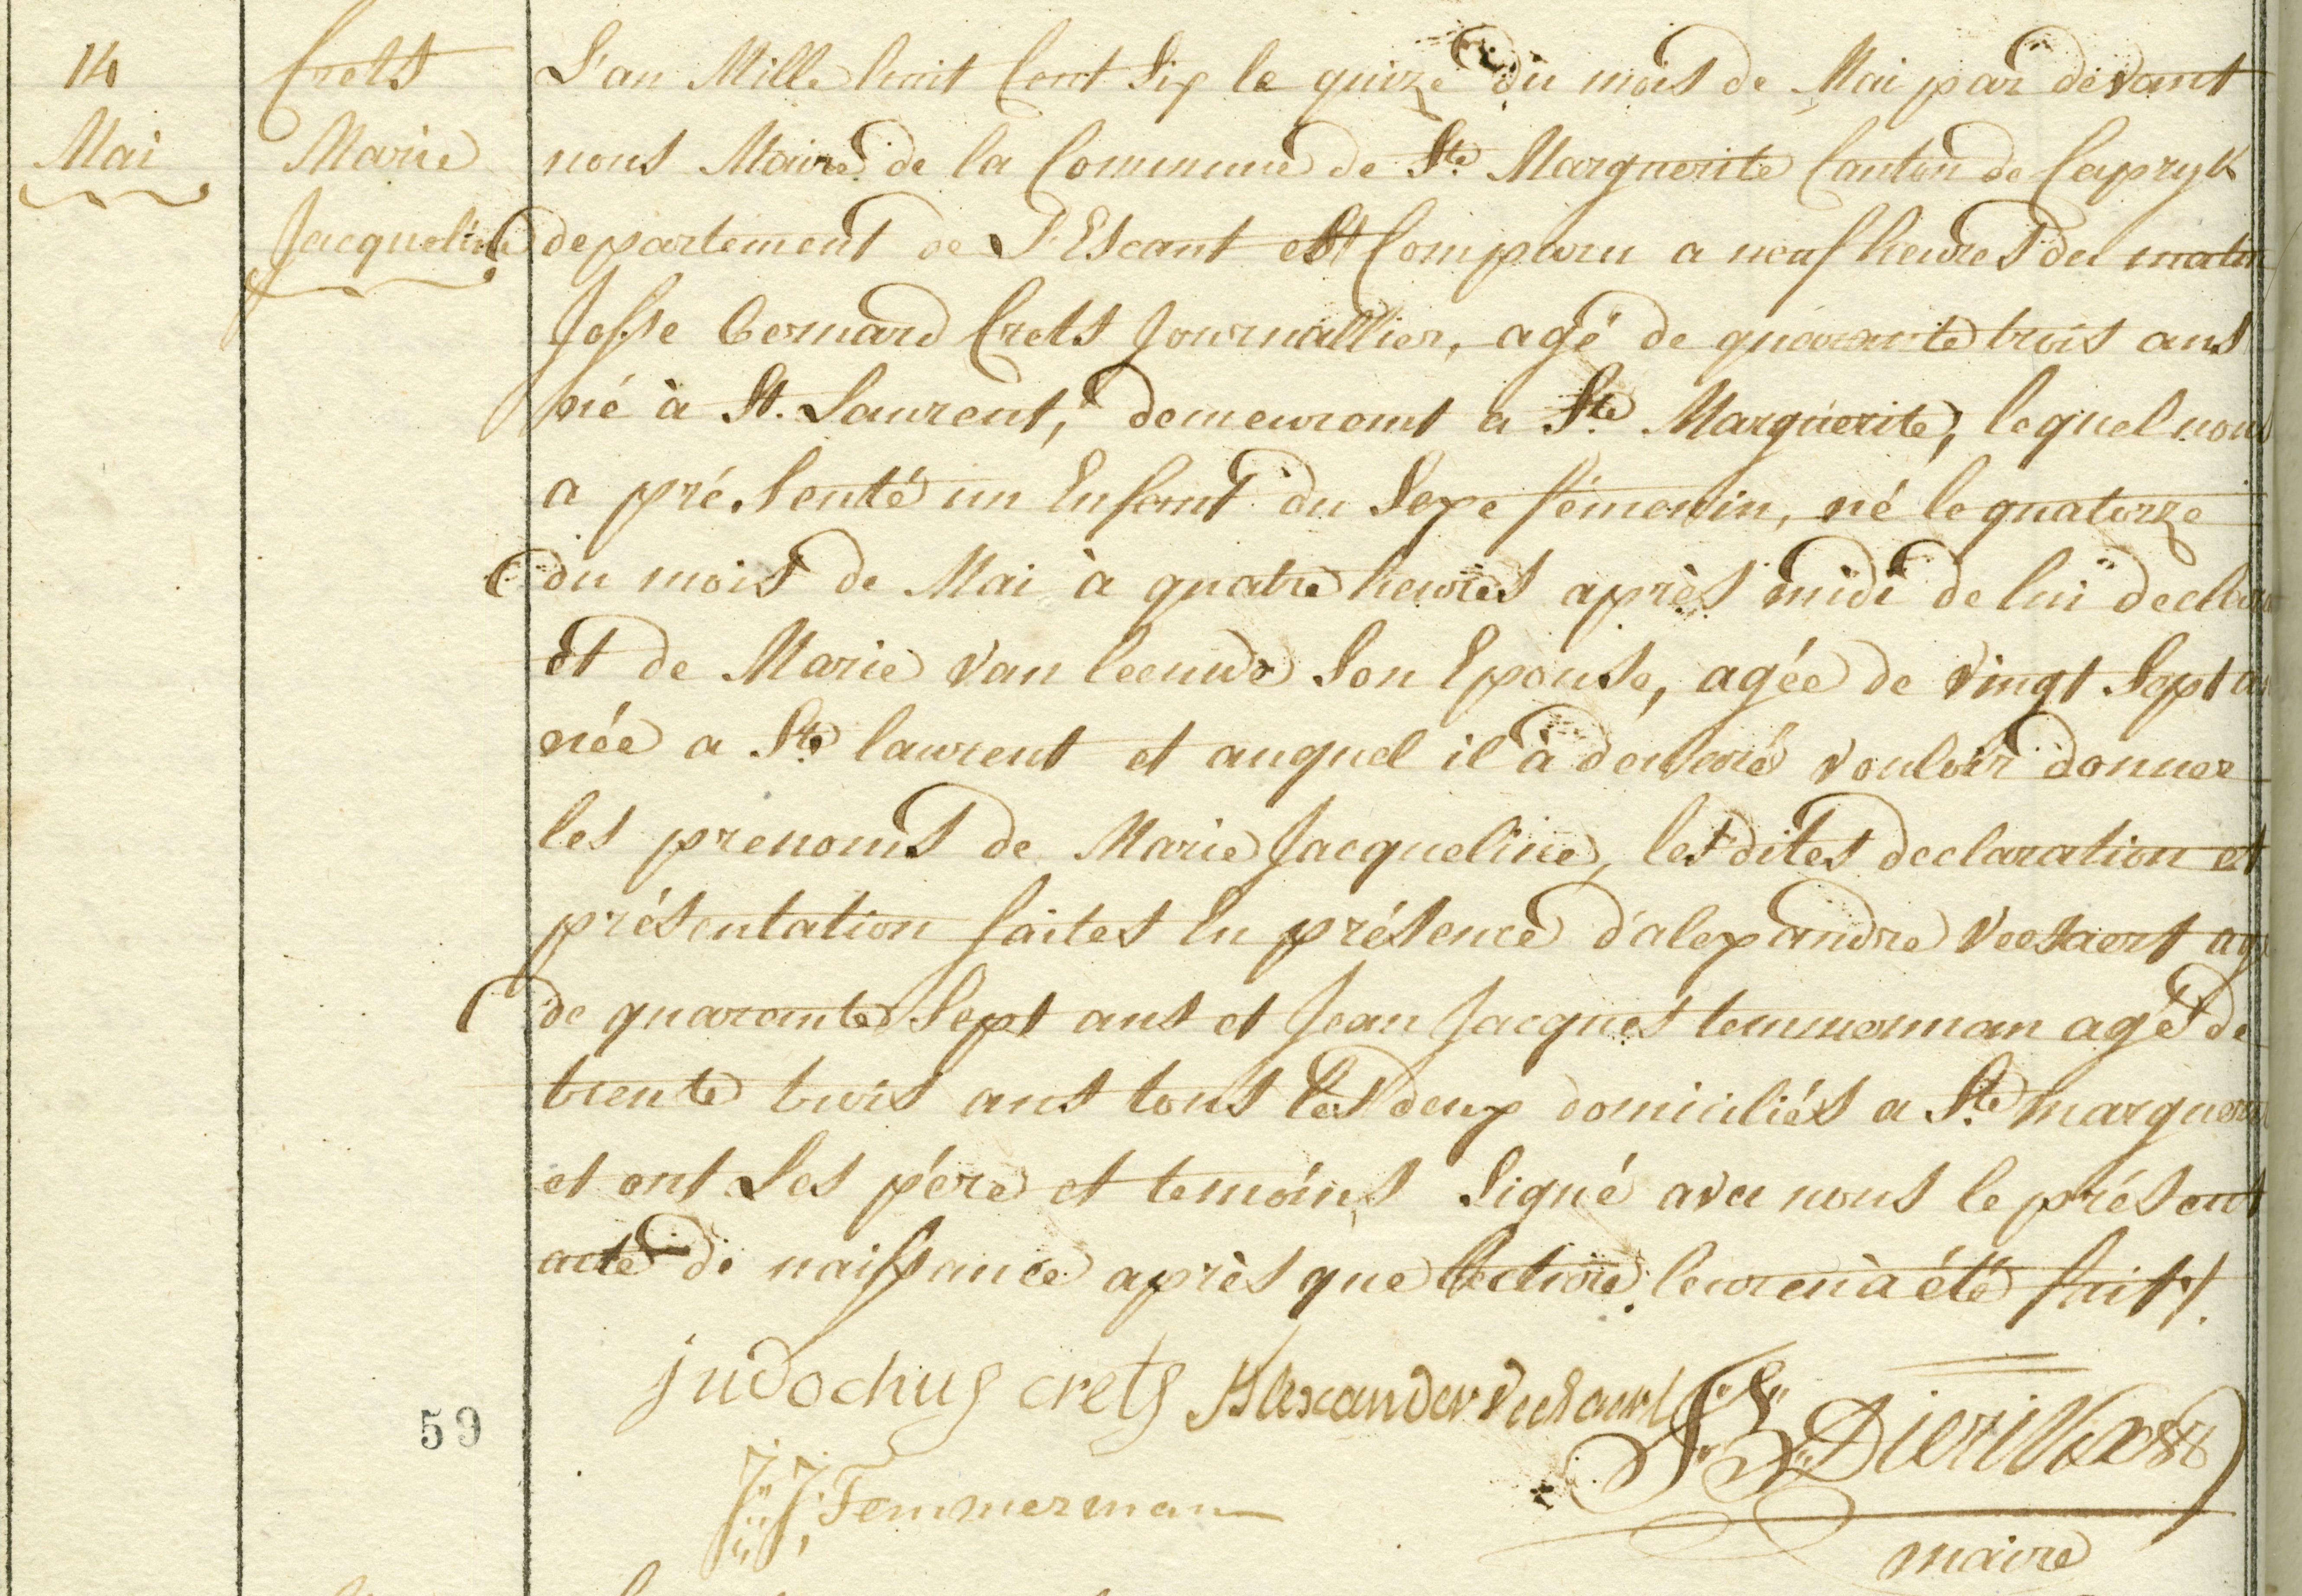 14
Mai
Crets
Marie
Jacqueline
L'an Mille huit Cent Six le quinze du mois de Mai par devant
nous Maire de la Commune de Ste Marguerite Canton de Capryk
departement de L'Escaut est Comparu a neuf heures du matin
Josse bernard Crets Journallier, agé de quarante trois ans
né à St. Laurent, demeurant a Ste Marguerite, lequel nous
a présenté un Enfant du Sexe fémenin, né le quatorze
du mois de Mai à quatre heures après midi de lui
et de Marie van leeuwe Son Epouse, agée de vingt Sept
née a Ste laurent et auquel il à déclaré vouloir donner
les prenoms de Marie Jacqueline, les dites declaration et
présentation faites En présence d'alexandre Veeschaert
de quarante Sept ans et Jean Jacques temmerman agé de
trente trois ans tous les deux domiciliés a Ste
et ont Les pére et temóins Signé avec nous le présent
acte de naissance après que lecture leur en à été fait /.
judochus crets Alexander
J: J: Temmerman
Dierikx
maire
59